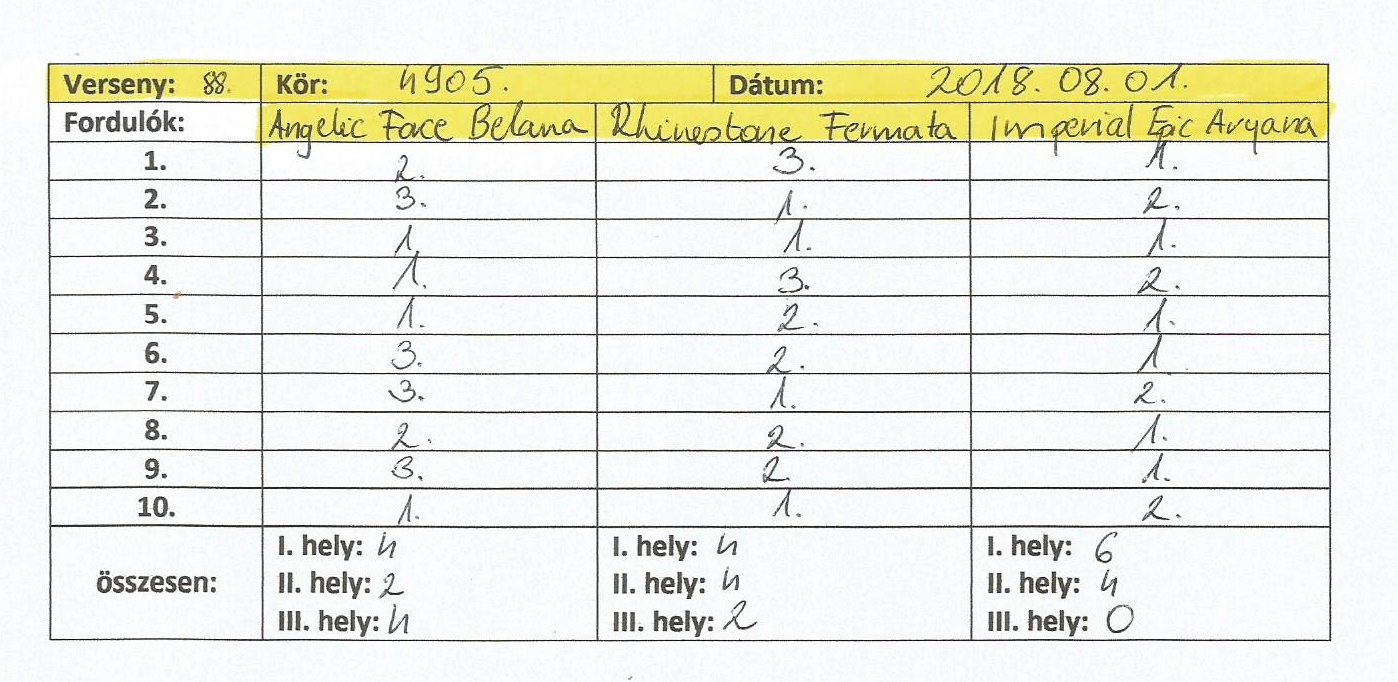 Verseny: 88. Kör: 4905. Dátum: 2018.08.01.
Fordulók: Angelic Face Belana Rhinestone Fermata Imperial Epic Aryana
1. 2. 3. 1.
2. 3. 1. 2.
3. 1 1. 1.
4. 1. 3. 2.
5. 1. 2. 1.
6. 3. 2. 1
7. 3. 1. 2.
8. 2. 2. 1.
9. 3. 2 1.
10. 1. 1. 2.
összesen: I. hely: 4 I. hely: 4 I. hely: 6
II. hely: 2 II. hely: 4 II. hely: 4
III. hely: 4 III. hely: 2 III. hely: 0